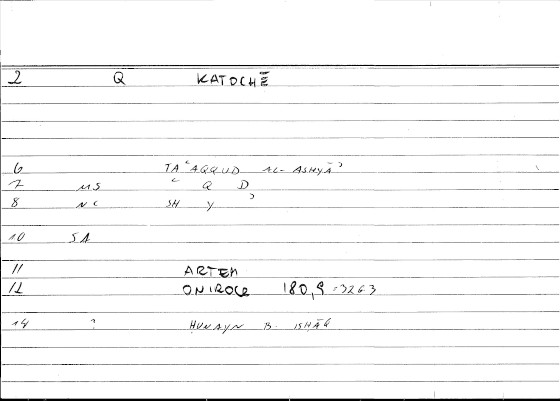 2 Q KATOCHĒ
6 TAʿAQQUD AL-ASHYĀʾ
7 MS ʿ Q D
8 NC SH Y ʾ
10 SA
11 ARTEM
12 ONIROCR 180,9 =326.3
14 ? HUNAYN B. ISHĀQ